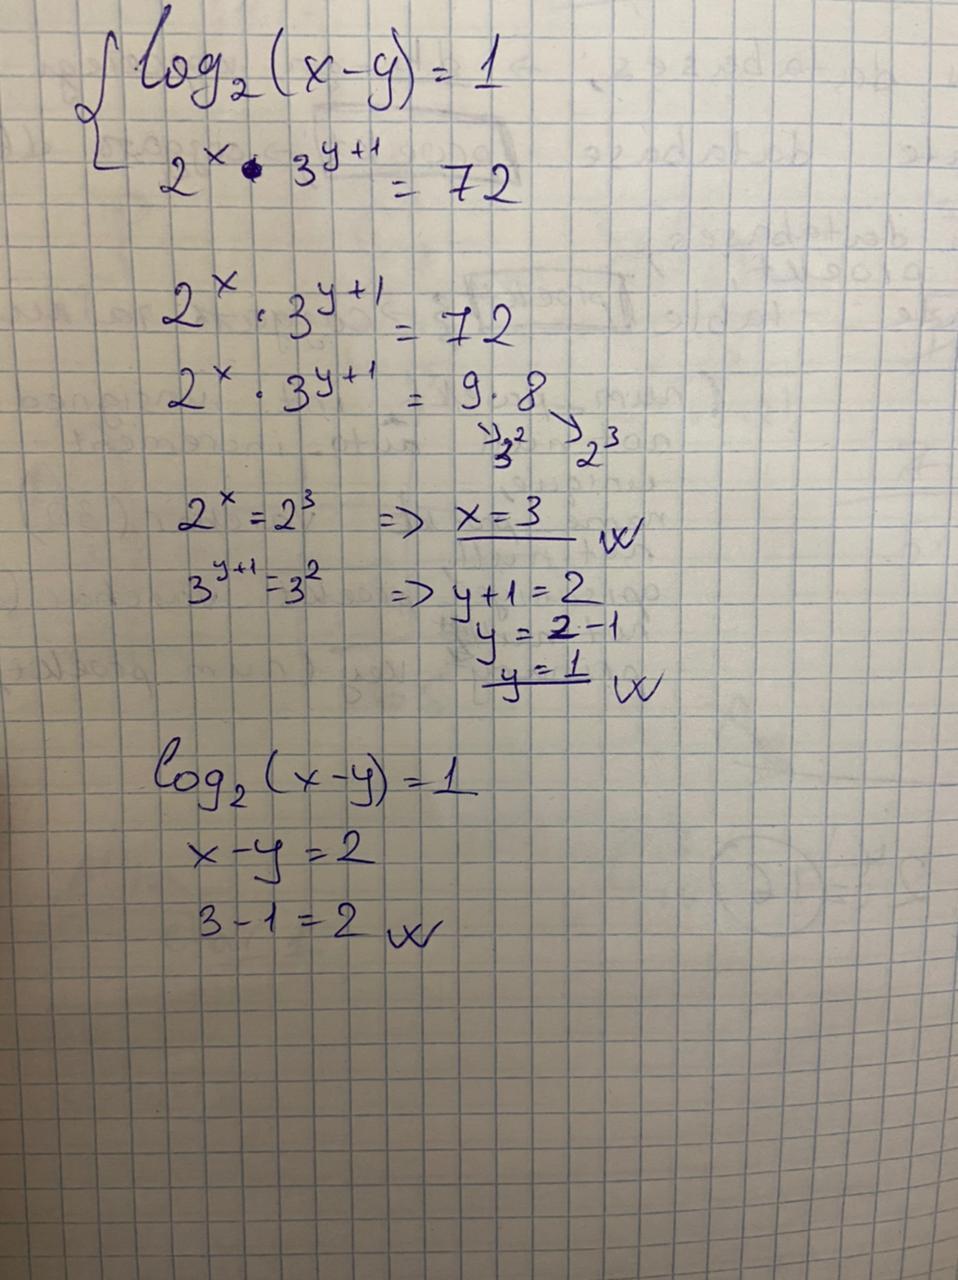 log₂(x-y) = 1
2ˣ · 3ʸ⁺¹ = 72
2ˣ · 3ʸ⁺¹ = 72
2ˣ · 3ʸ⁺¹ = 9 · 8
3² 2³
2ˣ = 2³ => x = 3
3ʸ⁺¹ = 3² => y+1 = 2
y = 2-1
y = 1
log₂(x-y) = 1
x-y = 2
3-1 = 2